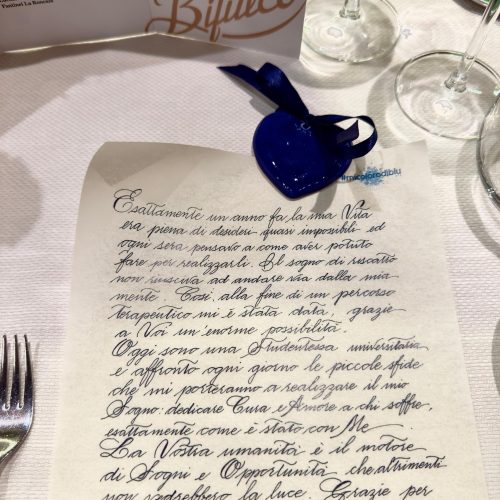 Fantinel La Roncaia
Bifulco
#micolorodiblu
Esattamente un anno fa la mia Vita
era piena di desideri quasi impossibili ed
ogni sera pensavo a come aver potuto
fare per realizzarli. Il sogno di riscatto
non riusciva ad andare via dalla mia
mente. Così, alla fine di un percorso
terapeutico mi è stata data, grazie
a Voi un'enorme possibilità.
Oggi sono una Studentessa universitaria
e affronto ogni giorno le piccole sfide
che mi porteranno a realizzare il mio
Sogno: dedicare Cura e Amore a chi soffre,
esattamente come è stato con Me.
La Vostra umanità è il motore
di Sogni e Opportunità che altrimenti
non vedrebbero la luce. Grazie per